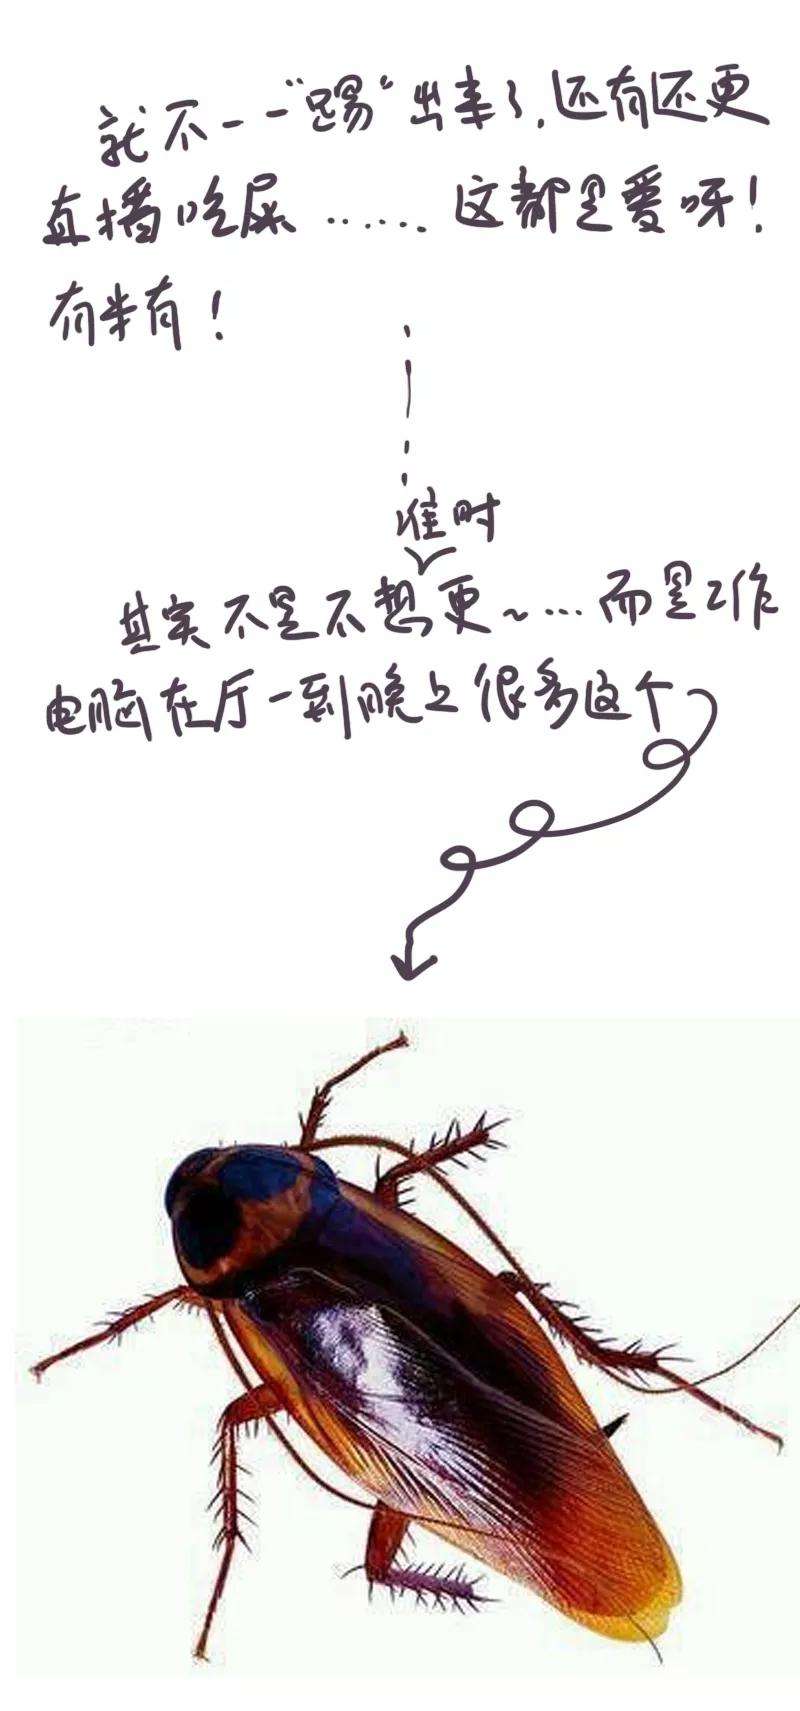 就不一一“踢”出来了,还有还更
直播吃屎……这都是爱呀!
有米有!
准时
其实不是不想更~…而是工作
电脑在厅一到晚上很多这个